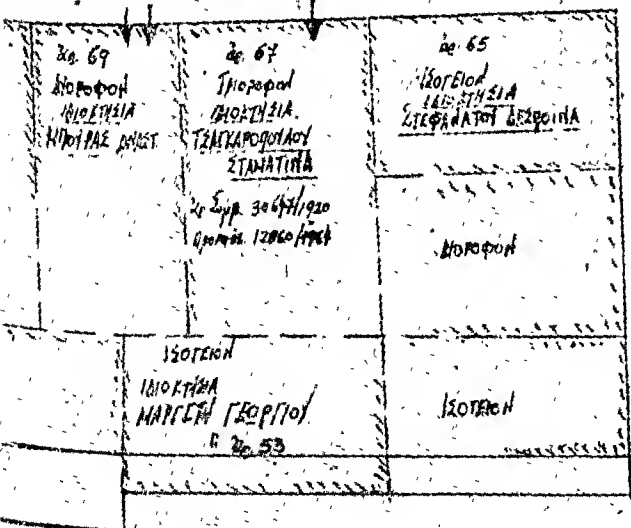 ἀρ. 69
ΔΙΟΡΟΦΟΝ
ΙΔΙΟΚΤΗΣΙΑ
ΜΠΟΥΡΑΣ
ἀρ. 67
ΤΡΙΟΡΟΦΟΝ
ΙΔΙΟΚΤΗΣΙΑ
ΤΣΑΓΚΑΡΟΠΟΥΛΟΥ
ΣΤΑΜΑΤΙΝΑ
ἀρ. Συμβ. 30647/1920
12060/1964
ἀρ. 65
ΙΣΟΓΕΙΟΝ
ΙΔΙΟΚΤΗΣΙΑ
ΣΤΕΦΑΝΑΤΟΥ ΔΕΣΠΟΙΝΑ
ΔΙΟΡΟΦΟΝ
ΙΣΟΓΕΙΟΝ
ΙΔΙΟΚΤΗΣΙΑ
ΜΑΡΓΕΤΗ ΓΕΩΡΓΙΟΥ
ἀρ. 53
ΙΣΟΓΕΙΟΝ